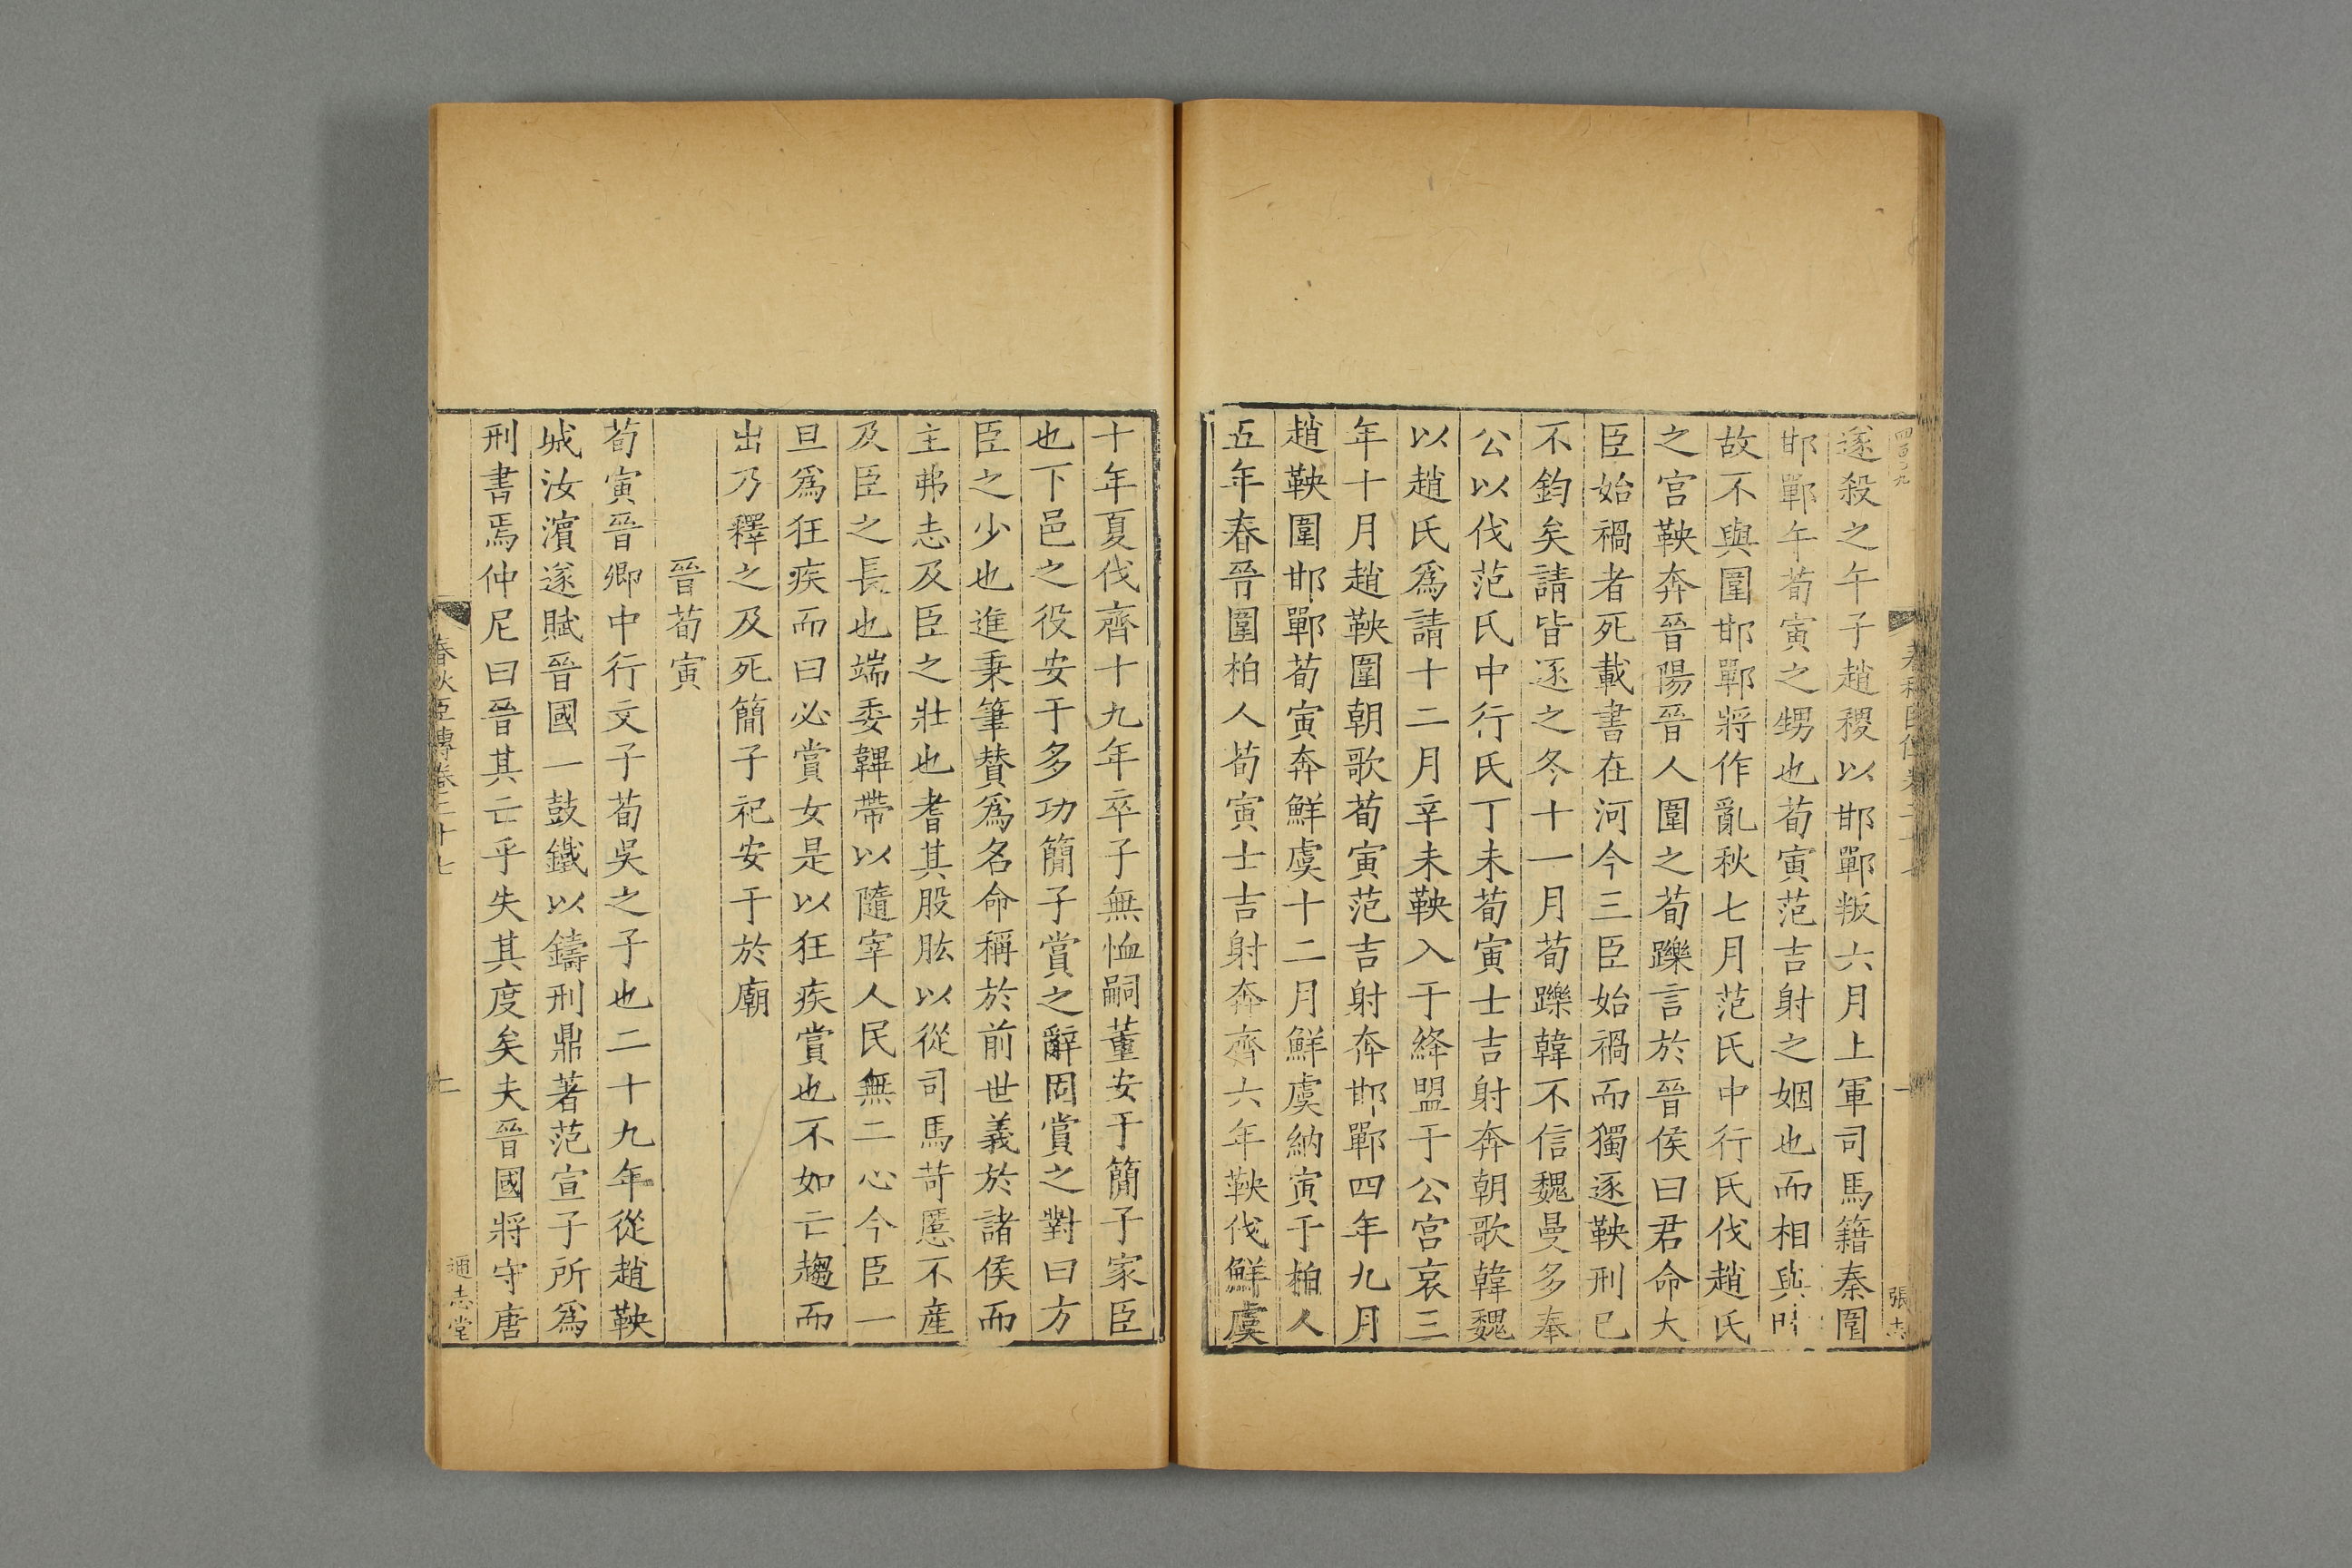 遂殺之午子趙稷以邯鄲叛六月上軍司馬籍秦圍
邯鄲午荀寅之甥也荀寅范吉射之姻也而相與
故不與圍邯鄲將作亂秋七月范氏中行氏伐趙氏
之宮鞅奔晉陽晉人圍之荀躒言於晉侯曰君命大
臣始禍者死載書在河今三臣始禍而獨逐鞅刑已
不鈞矣請皆逐之冬十一月荀躒韓不信魏曼多奉
公以伐范氏中行氏丁未荀寅士吉射奔朝歌韓魏
以趙氏爲請十二月辛未鞅入于絳盟于公宮哀三
年十月趙鞅圍朝歌荀寅范吉射奔邯鄲四年九月
趙鞅圍邯鄲荀寅奔鮮虞十二月鮮虞納寅于柏人
五年春晉圍柏人荀寅士吉射奔齊六年鞅伐鮮虞
十年夏伐齊十九年卒子無恤嗣董安于簡子家臣
也下邑之役安于多功簡子賞之辭固賞之對曰方
臣之少也進秉筆賛爲名命稱於前世義於諸侯而
主弗志及臣之壯也耆其股肱以從司馬苛慝不產
及臣之長也端委韠帶以隨宰人民無二心今臣一
旦爲狂疾而曰必賞女是以狂疾賞也不如亡趨而
出乃釋之及死簡子祀安于於廟
晉荀寅
荀寅晉卿中行文子荀吳之子也二十九年從趙鞅
城汝濵遂賦晉國一鼓鐵以鑄刑鼎著范宣子所爲
刑書焉仲尼曰晉其亡乎失其度矣夫晉國將守唐
春秋臣傳卷二十七
通志堂